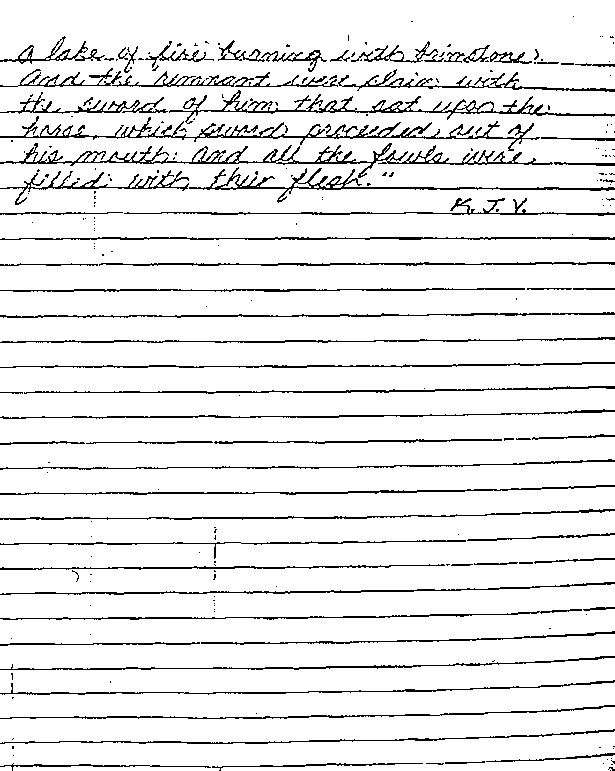 a lake of fire burning with brimstone.
And the remnant were slain with
the sword of him that sat upon the
horse, which sword proceeded out of
his mouth: and all the fowls were
filled with their flesh."
K. J. V.